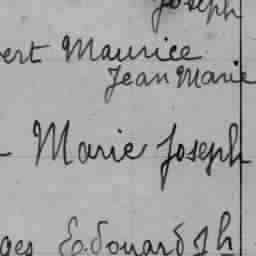 Joseph
ert Maurice
Jean Marie
Marie Joseph
ges Edouard Jh